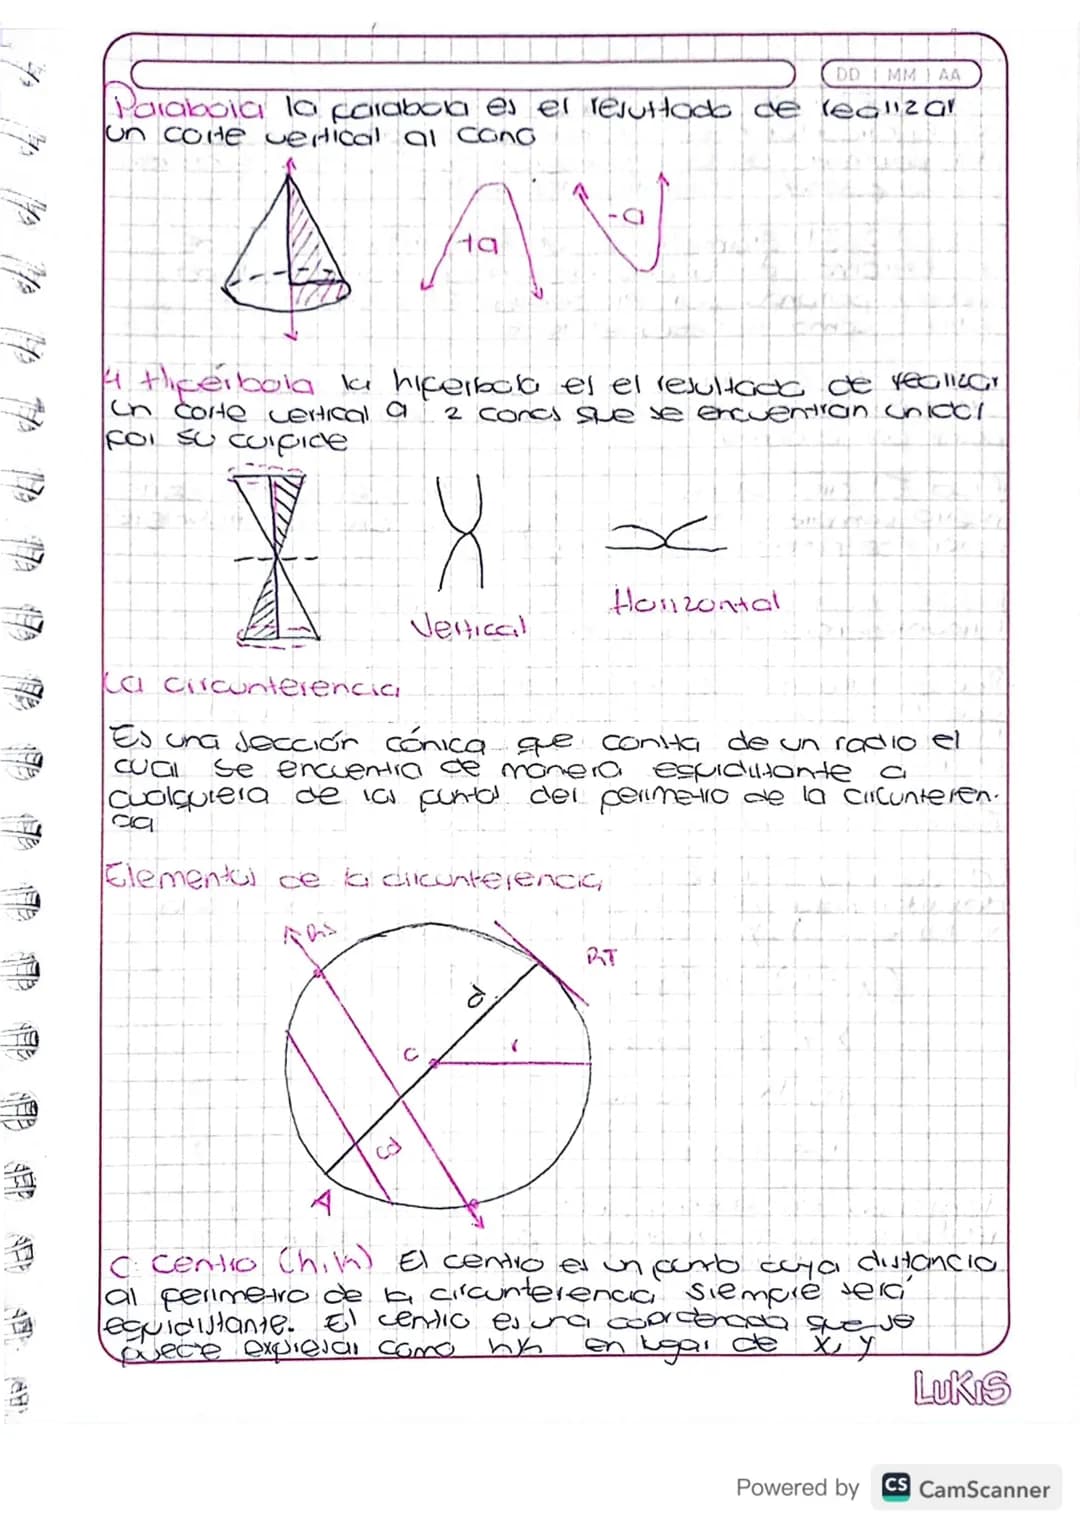 DD | MM | AA
Parabola la parabola es el resultado de realizar
un corte vertical al cono
+a
-a
4 Hipérbola la hiperbola es el resultado de realizar
un corte vertical a 2 conos que se encuentran unidos
por su cuspide
Vertical
Horizontal
La circunferencia
Es una sección cónica que consta de un radio el
cual se encuentra de manera equidistante a
cualquiera de los puntos del perimetro de la circunferen-
cia
Elementos de la circunferencia
RS
RT
d
C
r
A
C: Centro (h,k) El centro es un punto cuya distancia
al perimetro de la circunferencia siempre será
equidistante. El centro es una coordenada que se
puede expresar como h,k en lugar de x, y
LUKIS
Powered by CS CamScanner